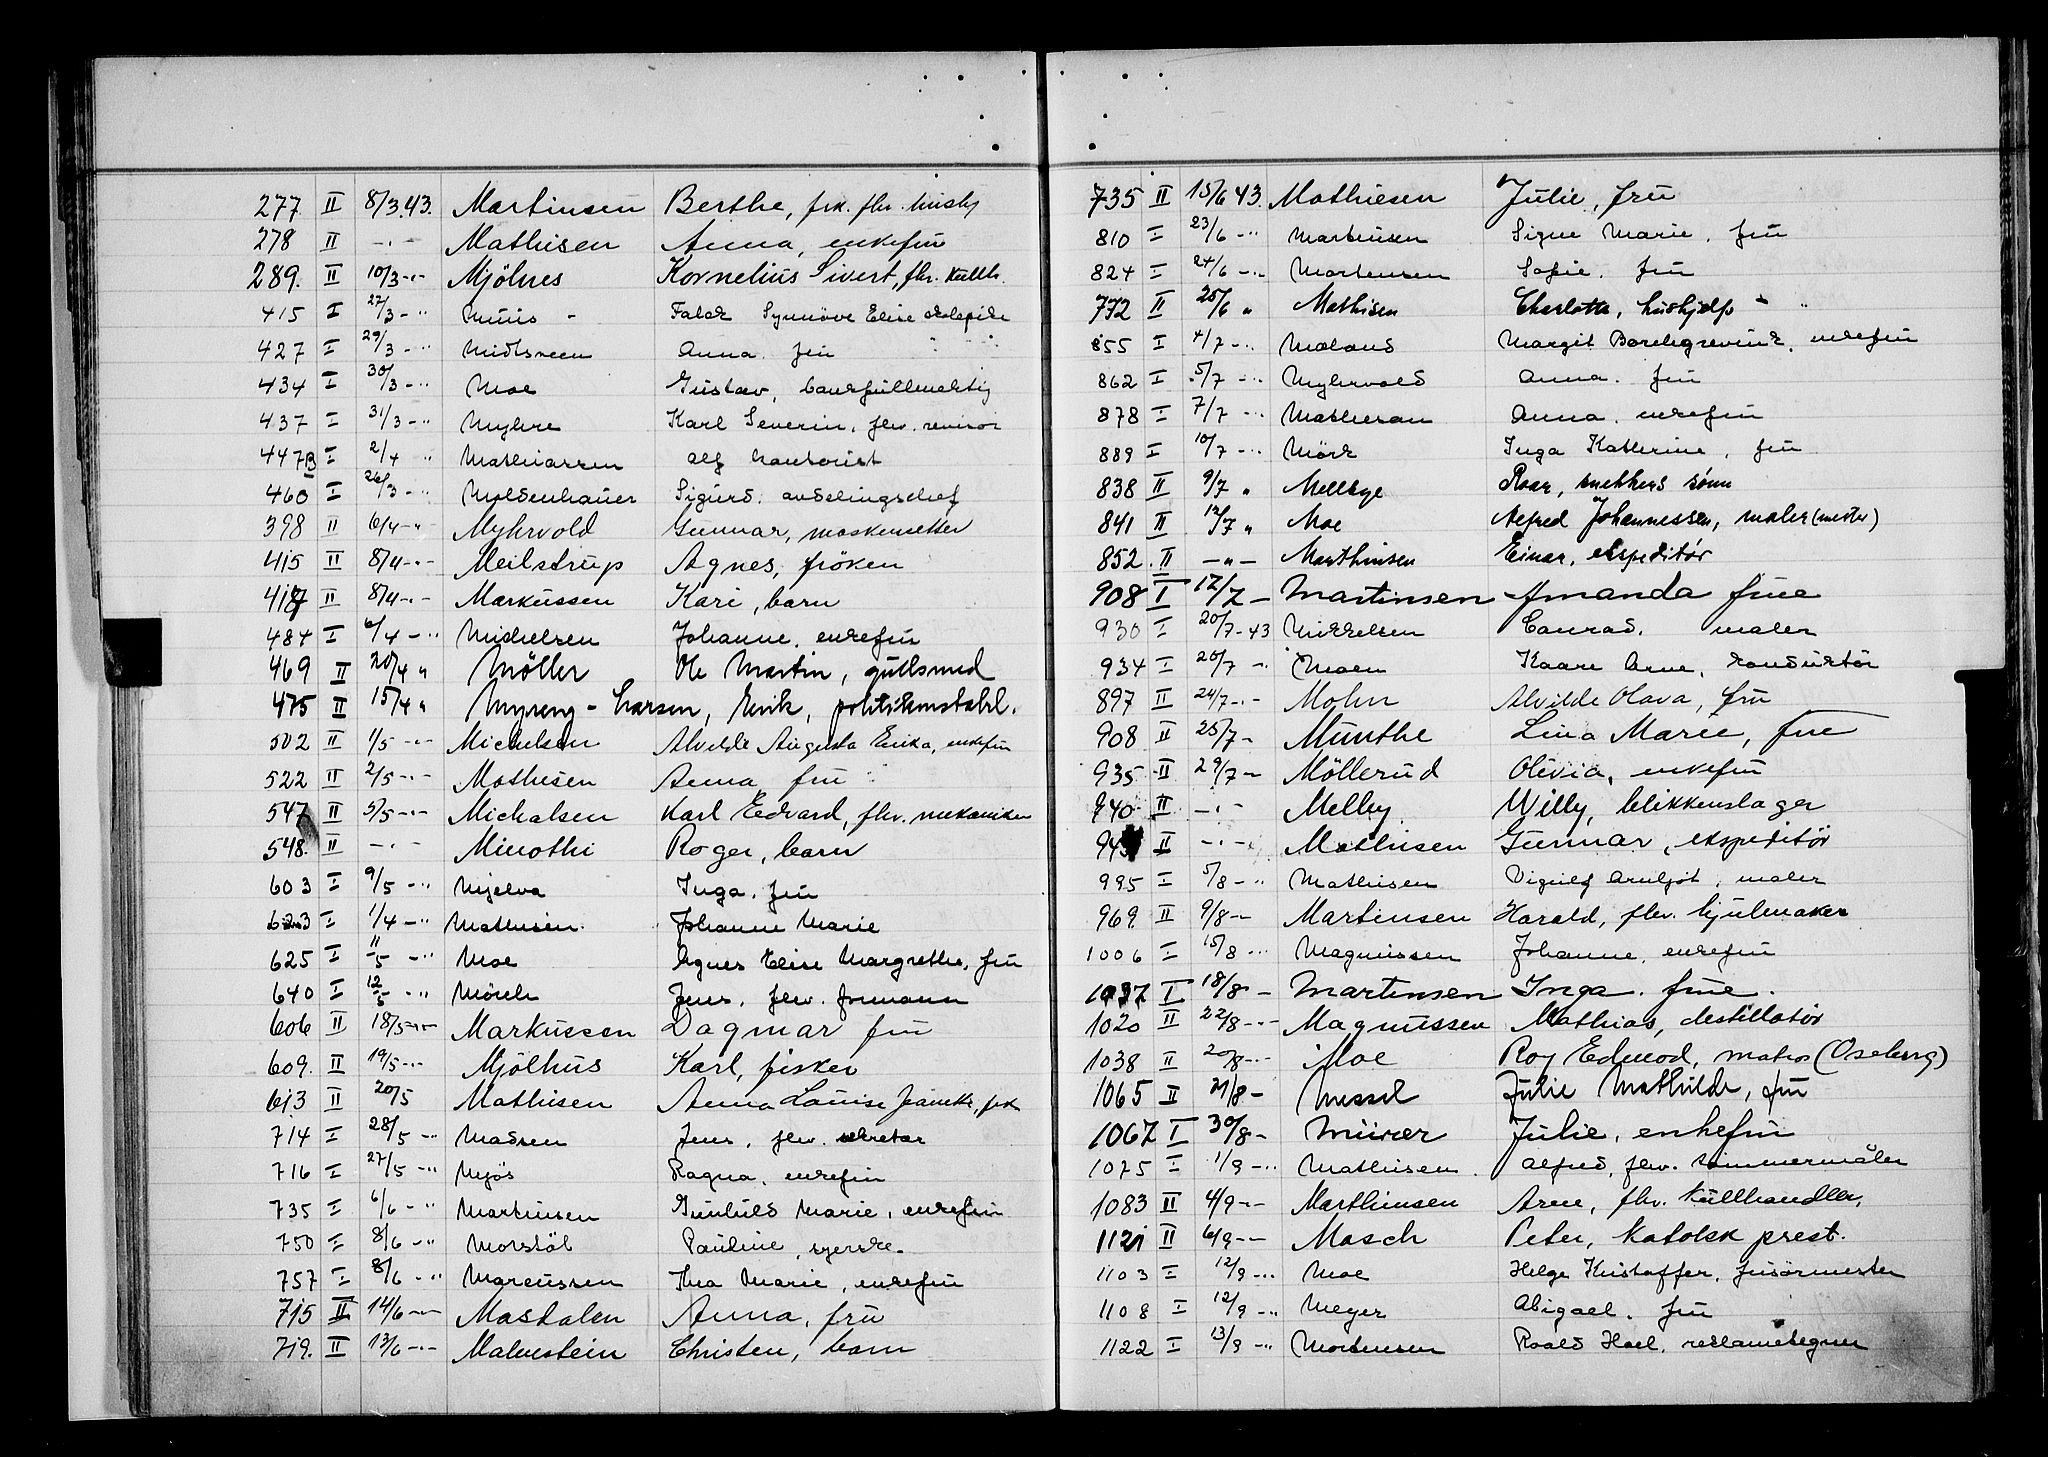 277. II 8/3.43. Martinsen Berthe, frk. fhv. husby
278 II -"- Mathisen Anna, enkefru
289. II 10/3 -"- Mjölnes Kornelius Sivert, fhv. kullh.
415 I 27/3 -" Muus - Falck Synnöve Elise
427 I 29/3 -" Midtsveen Anna. fru
434 I 30/3 -" Moe Gustav, bankfullmektig
437 I 31/3 -" Myhre Karl Severin, fhv. revisor
447B I 2/4 " Mathiassen Alf
460 I 26/3 -" Moldenhauer Sigurd. avdelingschef
398 II 6/4 -" Myhrvold Gunnar, maskinsetter
415 II 8/4 -"- Meilstrup Agnes, fröken
417 II 8/4 -"- Markussen Kari, barn
484 I 6/4 -" Michelsen Johanne, enkefru
469 II 20/4 " Möller Ole Martin, gullsmed
475 II 15/4 " Myreng-Larsen, Eirik, politikonstabel.
502 II 1/5 -"- Michelsen Alvilde Augusta Erika, enkefru
522 II 2/5 -"- Mathisen Anna, fru
547 II 5/5 -"- Michalsen Karl Edvard, fhv. mekaniker
548. II -"- Minothi Roger, barn
603 I 9/5 -" Mjelva Inga. fru
623 I 1/4 -" Mathisen Johanne Marie
625 I 11/5 -" Moe Agnes Elise Margrethe, fru
640 I 12/5 -" Mörch Jens. fhv. formann
606 II 18/5 -"- Markussen Dagmar fru
609. II 19/5 -"- Mjölhus Karl, fisker
613 II 20/5 Mathisen Anna Louise Jeanette, frk
714 I 28/5 -" Madsen Jens, fhv. sekretær
716 I 27/5 -" Mjös Ragna, enkefru
735 I 6/6 -" Martinsen Gunhild Marie, enkefru
750 I 8/6 -" Morstöl Pauline, syerske.
757 I 8/6 -" Marcussen Thea Marie, enkefru
715 II 14/6 -"- Mastalen Anna, fru
719. II 13/6 -"- Malmstein Christen, barn
735 II 15/6 43. Mathiesen Julie, fru
810 I 23/6 -" Martinsen Signe Marie, fru
824 I 24/6 -"- Mortensen Sofie. fru
772 II 25/6 " Mathisen Charlotte, hushjelp
855 I 4/7 -" Moland Margit Borchgrevink, enkefru
862 I 5/7 -" Myhrvold Anna. fru
878 I 7/7 -" Mathiesen Anna, enkefru
889 I 10/7 -" Mörk Inga Katherine, fru
838 II 9/7 " Mellbye Roar, snekkers sønn
841 II 12/7 " Moe Alfred Johannessen, maler (mester)
852. II -"- Marthinsen Einar, ekspeditør
908 I 17/7 - Martinsen Amanda frue
930 I 20/7-43 Mikkelsen Conrad. maler
934 I 20/7 -" Moen Kaare Arne, konduktör
897 II 24/7 -"- Mohn Alvilde Olava, fru
908 II 25/7 - Munthe Lina Marie, frue
935 II 29/7 - Möllerud Olivia, enkefru
940 II -"- Melby Willy, blikkenslager
94 II -"- Mathisen Gunnar, ekspeditør
995 I 5/8 -" Mathisen Vignild Arnljot, maler
969. II 9/8 -"- Martinsen Harald, fhv. hjulmaker
1006 I 15/8 -" Magnussen Johanne, enkefru
1037 I 18/8 - Martinsen Inga. frue.
1020 II 22/8 -"- Magnussen Mathias, destillatør
1038 II 20/8 -"- Moe Roy Edmod, matros (Oseberg)
1065 II 21/8 - Messel Julie Mathilde, fru
1067 I 30/8 - Murer Julie, enkefru
1075 I 1/9 -" Mathisen. Alfred, fhv. tømmermåler
1083 II 4/9 -"- Marthinsen Arne, fhv. kullhandler,
1121 II 6/9 -"- Mosch Peter, katolsk prest.
1103 I 12/9 -" Moe Helge Kristoffer, frisörmester
1108 I 12/9 -" Meyer Abigael. fru
1122 I 13/9 -" Mortensen Roald Hoel, reklametegner